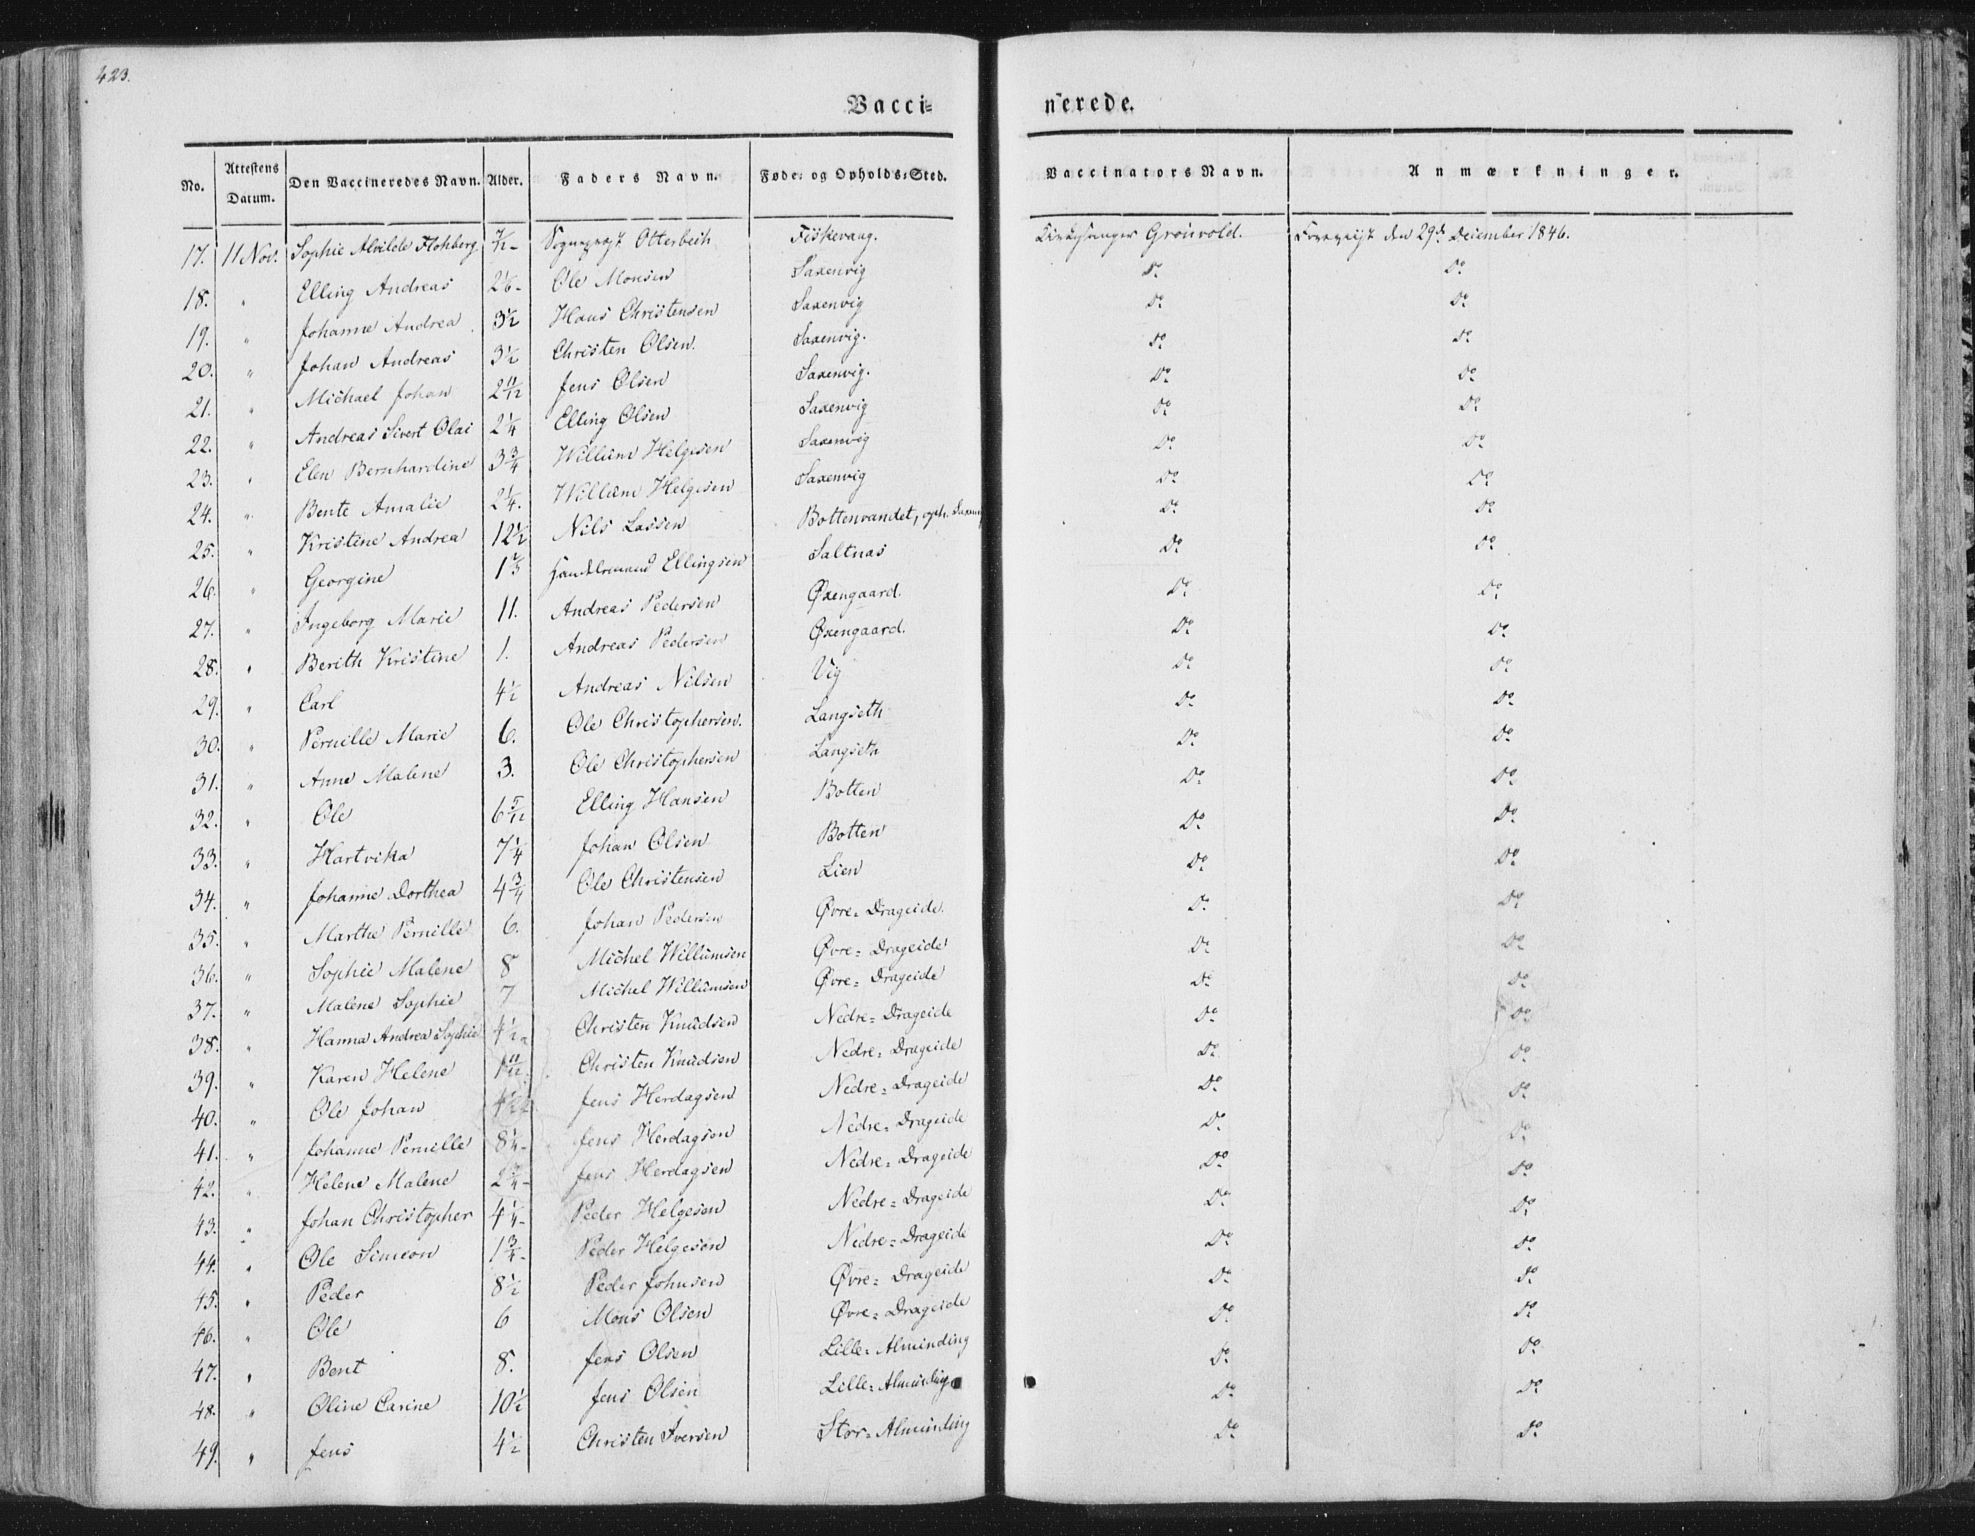 423.
Vacci= nerede.
No. Attestens Datum. Den Vaccineredes Navn. Alder. Faders Navn. Føde= og Opholds=Sted. Vaccinators Navn. Anmærkninger.
17. 11 Nov. Sophie Alvilde Flohberg 7/12 Sognepræst Otterbech Fiskevaag. Kirkesanger Grønvold. Foreviist den 29de December 1846.
18. " Elling Andreas 2 1/6 Ole Monsen Saxenvig Do Do
19. " Johanne Andrea 3 1/2 Hans Christensen Saxenvig Do Do
20. " Johan Andreas 3 1/2 Christen Olsen Saxenvig. Do Do
21. " Michael Johan 2 11/12 Jens Olsen Saxenvig. Do Do
22. " Andreas Sivert Olai 2 1/4 Elling Olsen Saxenvig Do Do
23. " Elen Bernhardine 3 3/4 Willum Helgesen Saxenvig Do Do
24. " Bente Amalie 2 1/4. Willum Helgesen Saxenvig Do Do
25. " Kristine Andrea 12 1/2 Nils Lassen Bottenvandet, oph. Do Do
26. " Georgine 1 1/3 Handelsmand Ellingsen Saltnæs Do Do
27. " Ingeborg Marie 11. Andreas Pedersen Øxengaard. Do Do
28. " Berith Kristine 1. Andreas Pedersen Øxengaard. Do Do
29. " Carl 4 1/2 Andreas Nilsen Vig Do Do
30. " Pernille Marie 6. Ole Christophersen. Langseth Do Do
31. " Anne Malene 3. Ole Christophersen Langseth Do Do
32. " Ole 6 5/12 Elling Hansen Botten Do Do
33. " Hartvika 7 1/4 Johan Olsen Botten Do Do
34. " Johanne Dorthea 4 3/4 Ole Christensen Lien Do Do
35. " Marthe Pernille 6. Johan Pedersen Øvre=Drageide. Do Do
36. " Sophie Malene 8 Michel Willumsen Øvre=Drageide Do Do
37. " Malene Sophie 7 Michel Willumsen Øvre=Drageide Do Do
38. " Hanna Andrea Sophie 4 1/2 Christen Knudsen Nedre=Drageide Do Do
39. " Karen Helene 1 11/12. Christen Knudsen Nedre=Drageide Do Do
40. " Ole Johan Jens Herdagsen Nedre=Drageide Do Do
41. " Johanne Pernille 8 1/4 Jens Herdagsen Nedre=Drageide Do Do
42. " Helene Malene 2 3/4 Jens Herdagsen Nedre=Drageide Do Do
43. " Johan Christopher 4 1/4 Peder Helgesen Nedre=Drageide Do Do
44. " Ole Simeon 1 3/4 Peder Helgesen Nedre=Drageide Do Do
45. " Peder 8 1/2 Peder Johnsen Øvre=Drageide Do Do
46. " Ole 6 Mons Olsen Øvre=Drageide Do Do
47. " Bent 8. Jens Olsen Lille=Alminding Do Do
48. " Oline Carine 10 1/2 Jens Olsen Lille=Alminding Do Do
49. " Jens 4 1/2 Christen Iversen Stor=Alminding Do Do